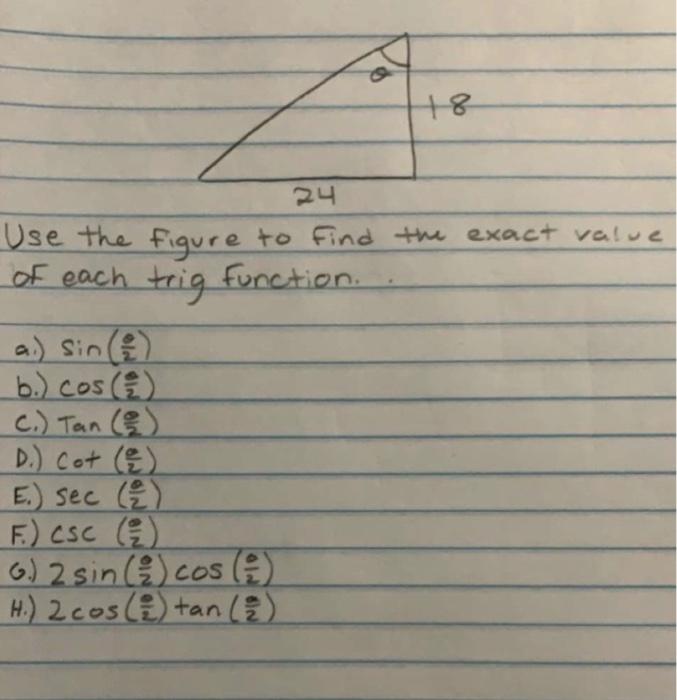 θ
18
24
Use the figure to find the exact value
of each trig function.
a.) sin(θ/2)
b.) cos(θ/2)
C.) Tan (θ/2)
D.) cot (θ/2)
E.) sec (θ/2)
F.) csc (θ/2)
G.) 2 sin(θ/2) cos(θ/2)
H.) 2 cos(θ/2) tan(θ/2)